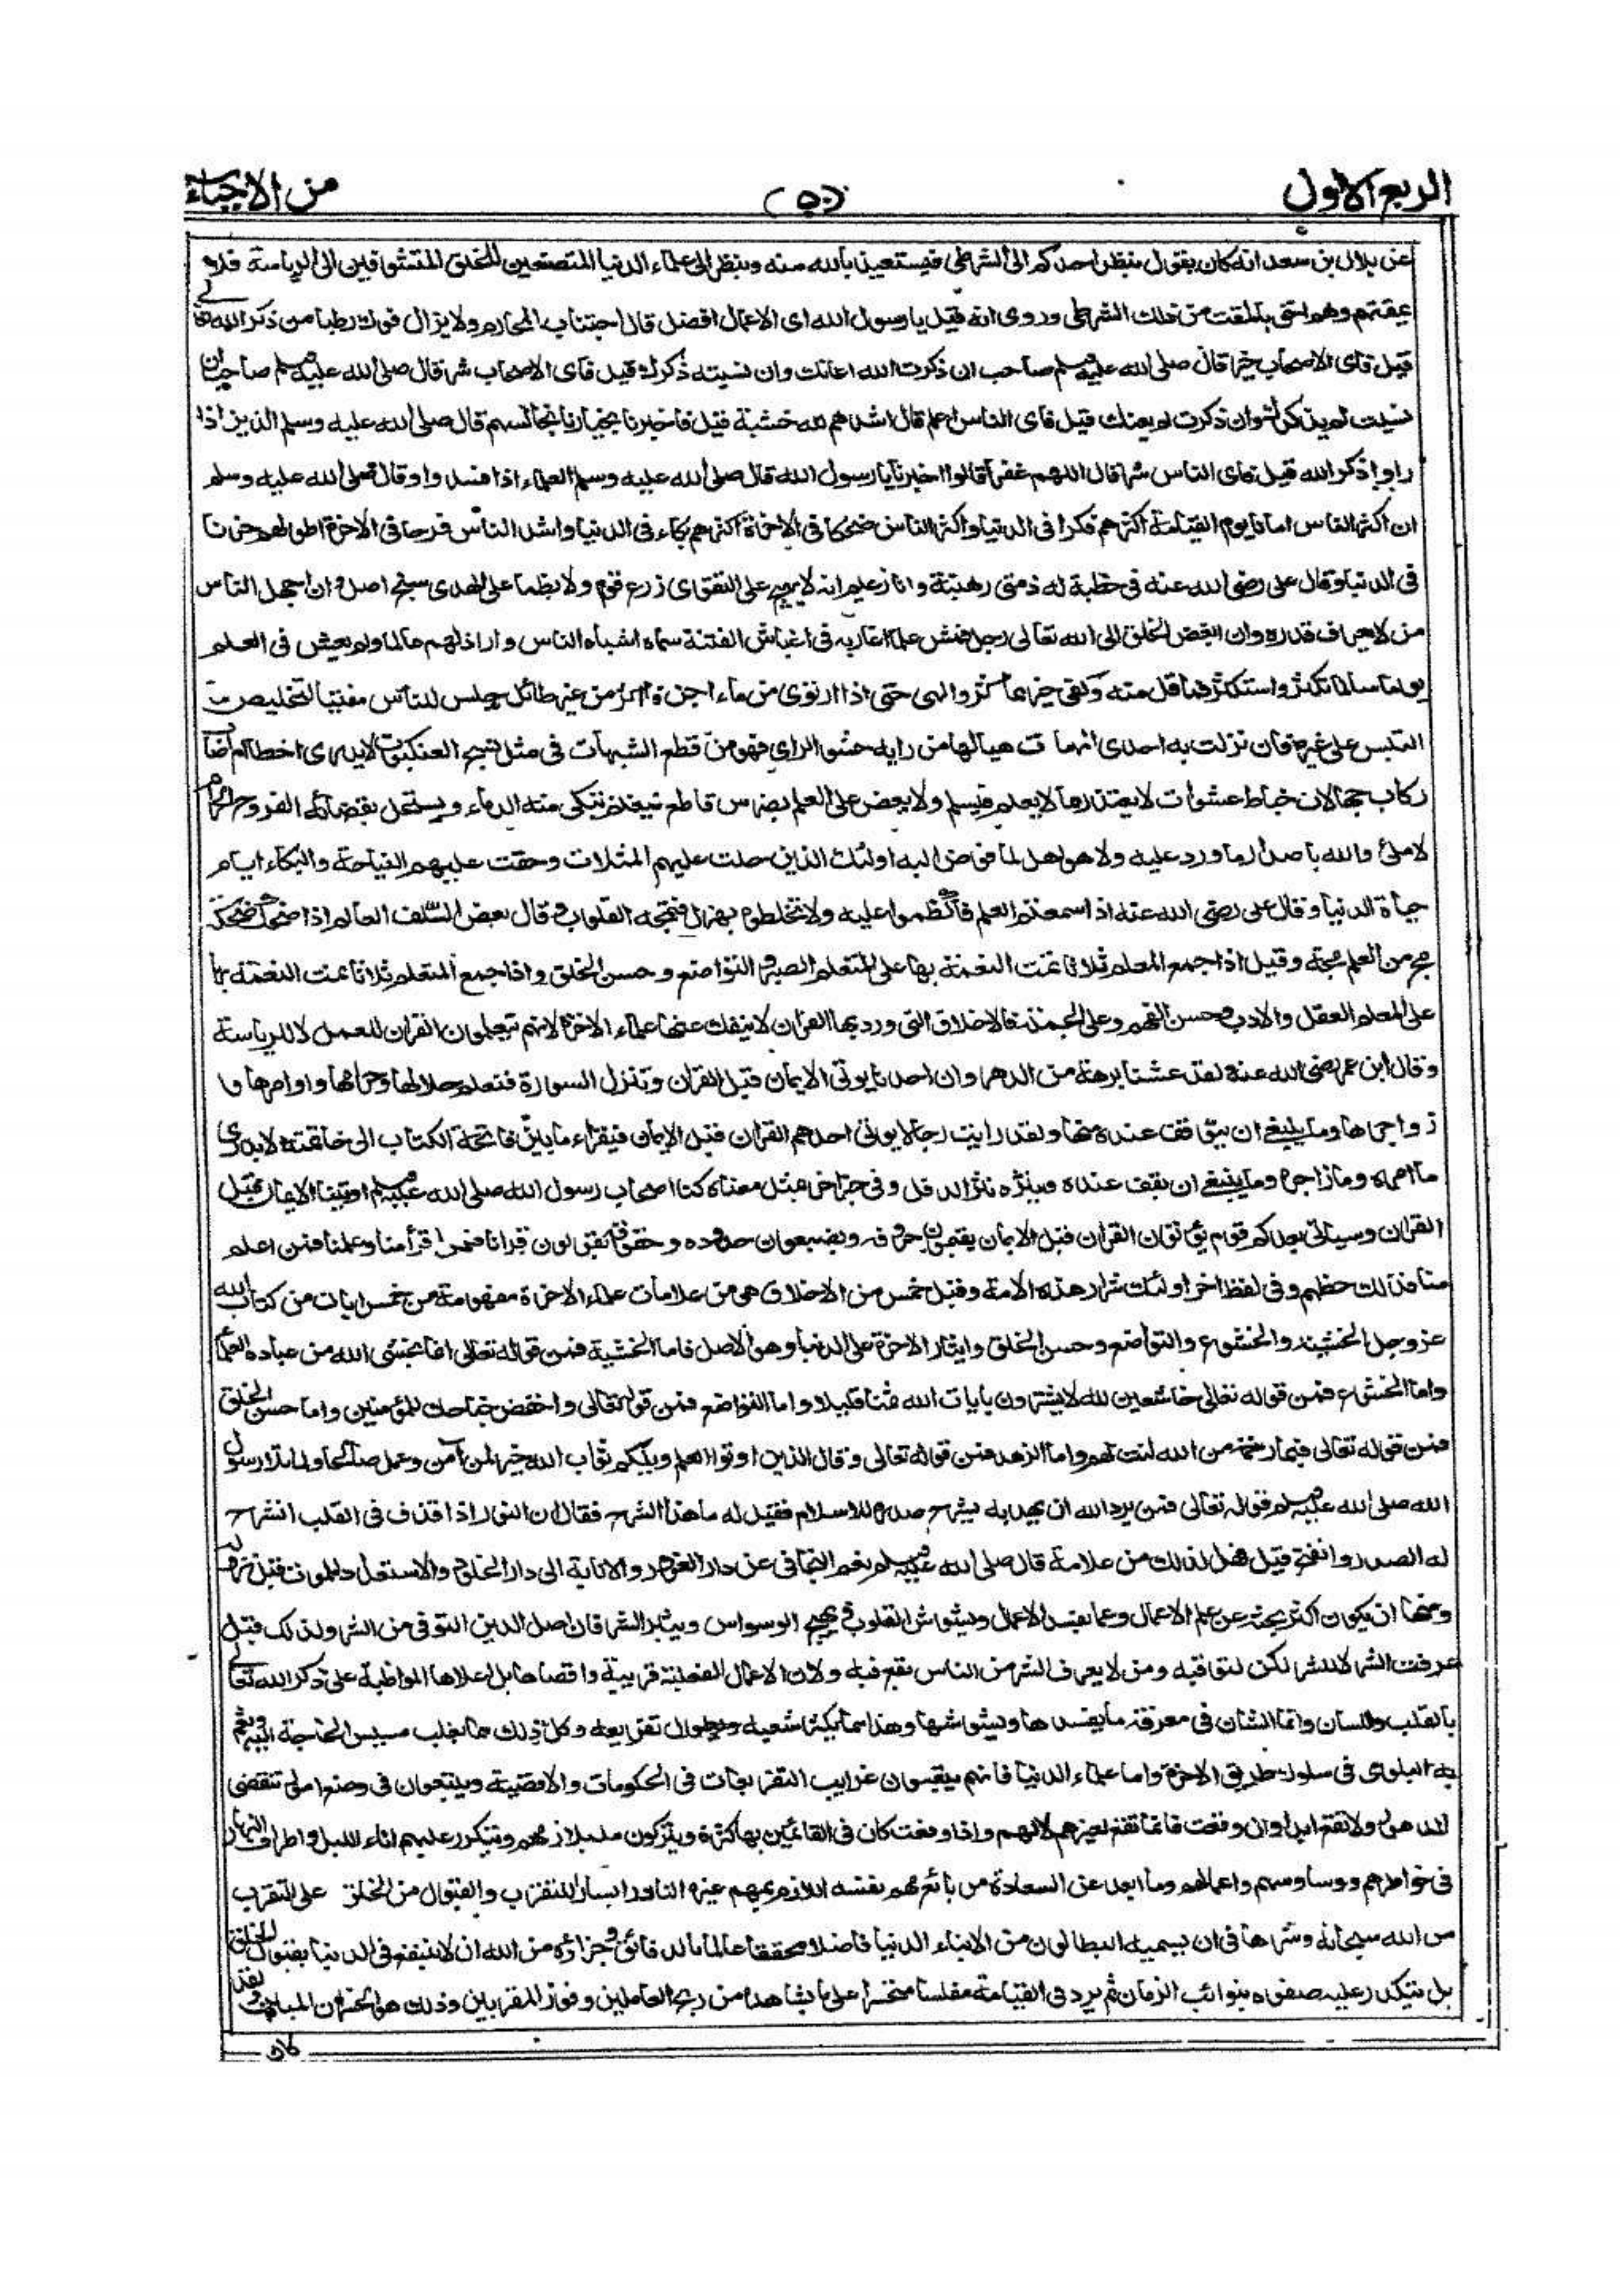 الربع الاول
(٥٠)
من الاحياء
عن بلال بن سعد انه كان يقول ينظر احدكم الى الشرطى فيستعيذ بالله منه وينظر الى علماء الدنيا المتصنعين للخلق المتشوقين الى الرياسة فلا
يمقتهم وهم احق بالمقت من ذلك الشرطى وروى انه قيل يا رسول الله اى الاعمال افضل قال اجتناب المحارم ولا يزال فوك رطبا من ذكر الله تعالى
قيل فاى الاصحاب خير قال صلى الله عليه وسلم صاحب ان ذكرت الله اعانك وان نسيته ذكرك قيل فاى الاصحاب شر قال صلى الله عليه وسلم صاحب ان
نسيت لم يذكرك وان ذكرت لم يعنك قيل فاى الناس اعلم قال اشدهم لله خشية قيل فاخبرنا بخيارنا نجالسهم قال صلى الله عليه وسلم الذين اذا
راوا ذكر الله قيل فاى الناس شر قال اللهم غفرا قالوا اخبرنا يا رسول الله قال صلى الله عليه وسلم العلماء اذا فسدوا وقال صلى الله عليه وسلم
ان اكثر الناس امانا يوم القيامة اكثرهم فكرا فى الدنيا واكثر الناس ضحكا فى الاخرة اكثرهم بكاء فى الدنيا واشد الناس فرحا فى الاخرة اطولهم حزنا
فى الدنيا وقال على رضى الله عنه فى خطبة له ذمتى رهينة وانا زعيم انه لا يهيج على التقوى زرع قوم ولا يظما على الهدى سنخ اصل وان اجهل الناس
من لا يعرف قدره وان ابغض الخلق الى الله تعالى رجل قمش علما اغار به فى اغباش الفتنة سماه اشباه الناس واراذلهم عالما ولم يعش فى العلم
يوما سالما تكثر واستكثر فما قل منه وكفى خير مما كثر والهى حتى اذا ارتوى من ماء اجن واكثر من غير طائل جلس للناس مفتيا لتخليص ما
التبس على غيره فان نزلت به احدى المهمات هيا لها من رايه حشو الراى فهو من قطع الشبهات فى مثل نسج العنكبوت لا يدرى اخطا ام اصاب
ركاب جهالات خباط عشوات لا يعتذر مما لا يعلم فيسلم ولا يعض على العلم بضرس قاطع فيغنم تبكى منه الدماء ويستحل بقضائه الفروج الحرام
لا ملئ والله باصدار ما ورد عليه ولا هو اهل لما فوض اليه اولئك الذين حلت عليهم المثلات وحقت عليهم النياحة والبكاء ايام
حياة الدنيا وقال على رضى الله عنه اذا سمعتم العلم فاكظموا عليه ولا تخلطوه بهزل فتمجه القلوب وقال بعض السلف العالم اذا ضحك ضحكة
مج من العلم مجة وقيل اذا جمع المعلم ثلاثا تمت النعمة بها على المتعلم الصبر والتواضع وحسن الخلق واذا جمع المتعلم ثلاثا تمت النعمة بها
على المعلم العقل والادب وحسن الفهم وعلى الجملة فالاخلاق التى ورد بها القران لا ينفك عنها علماء الاخرة لانهم يتعلمون القران للعمل لا للرياسة
وقال ابن عمر رضى الله عنه لقد عشنا برهة من الدهر وان احدنا يوتى الايمان قبل القران وتنزل السورة فنتعلم حلالها وحرامها واوامرها و
زواجرها وما ينبغى ان يتوقف عنده منها ولقد رايت رجالا يوتى احدهم القران قبل الايمان فيقراء ما بين فاتحة الكتاب الى خاتمته لا يدرى
ما امره وما زاجره وما ينبغى ان يقف عنده وينثره نثر الدقل وفى خبر اخر بمثل معناه كنا اصحاب رسول الله صلى الله عليه وسلم اوتينا الايمان قبل
القران وسياتى بعدكم قوم يؤتون القران قبل الايمان يقيمون حروفه ويضيعون حدوده وحقوقه يقولون قرانا فمن اقرأ منا وعلمنا فمن اعلم
منا فذلك حظهم وفى لفظ اخر اولئك شرار هذه الامة وقيل خمس من الاخلاق هى من علامات علماء الاخرة مفهومة من خمس ايات من كتاب الله
عز وجل الخشية والخشوع والتواضع وحسن الخلق وايثار الاخرة على الدنيا وهو الاصل فاما الخشية فمن قوله تعالى انما يخشى الله من عباده العلماء
واما الخشوع فمن قوله تعالى خاشعين لله لا يشترون بايات الله ثمنا قليلا واما التواضع فمن قوله تعالى واخفض جناحك للمؤمنين واما حسن الخلق
فمن قوله تعالى فبما رحمة من الله لنت لهم واما الزهد فمن قوله تعالى وقال الذين اوتوا العلم ويلكم ثواب الله خير لمن آمن وعمل صالحا ولما تلا رسول
الله صلى الله عليه وسلم قوله تعالى فمن يرد الله ان يهديه يشرح صدره للاسلام فقيل له ما هذا الشرح فقال ان النور اذا قذف فى القلب انشرح
له الصدر وانفتح قيل فهل لذلك من علامة قال صلى الله عليه وسلم نعم التجافى عن دار الغرور والانابة الى دار الخلود والاستعداد للموت قبل نزوله
ومنها ان يكون اكثر بحثه عن علم الاعمال وعما يفسد الاعمال ويشوش القلوب ويهيج الوسواس ويثير الشر فان اصل الدين التوقى من الشر ولذلك قيل
عرفت الشر لا للشر لكن لتوقيه ومن لا يعرف الشر من الناس يقع فيه ولان الاعمال الفعلية قريبة واقصاها بل اعلاها المواظبة على ذكر الله تعالى
بالقلب واللسان وانما الشان فى معرفة ما يفسدها ويشوشها وهذا مما يكثر شعبه ويطول تفريعه وكل ذلك مما يغلب مسيس الحاجة اليه وتعم
به البلوى فى سلوك طريق الاخرة واما علماء الدنيا فانهم يتبعون غرايب التفريعات فى الحكومات والاقضية ويتعبون فى وضع صور تنقضى
الدهور ولا تقع ابدا وان وقعت فانما تقع لغيرهم لا لهم واذا وقعت كان فى القائمين بها كثرة ويتركون ما يلازمهم ويتكرر عليهم اناء الليل واطراف النهار
فى خواطرهم ووساوسهم واعمالهم وما ابعد عن السعادة من باع مهم نفسه اللازم بمهم غيره النادر ايثارا للتقرب والقبول من الخلق على التقرب
من الله سبحانه وشرها فى ان يسميه البطالون من الابناء الدنيا فاضلا محققا عالما بالدقائق وجزاؤه من الله ان لا ينتفع فى الدنيا بقبول الخلق
بل يتكدر عليه صفوه بنوائب الزمان ثم يرد فى القيامة مفلسا متحسرا على ما يشاهده من ربح العاملين وفوز المقربين وذلك هو الخسران المبين ولقد
كان